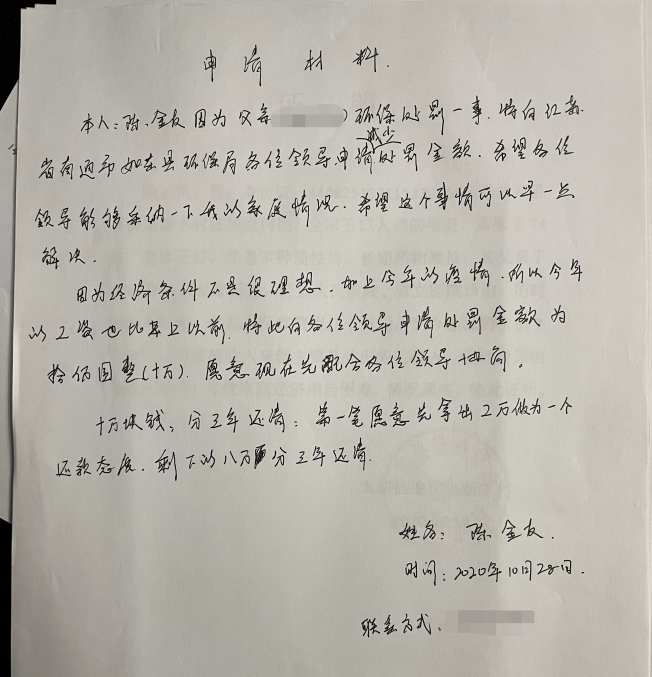 申请材料.
本人:陈金友因为父母 )环保处罚一事.特向江苏
省南通市如东县环保局各位领导申请减少处罚金额.希望各位
领导能够采纳一下我以家庭情况.希望这个事情可以早一点
解决.
因为经济条件不是很理想.加上今年以疫情.所以今年
以工资也比不上以前.特此向各位领导申请处罚金额为
拾 圆整(十万).愿意现在先配合各位领导
十万块钱,分三年还清:第一笔愿意先拿出2万做为一个
还款态度.剩下以八万 分三年还清.
姓名:陈金友.
时间:2020年10月28日.
联系方式.